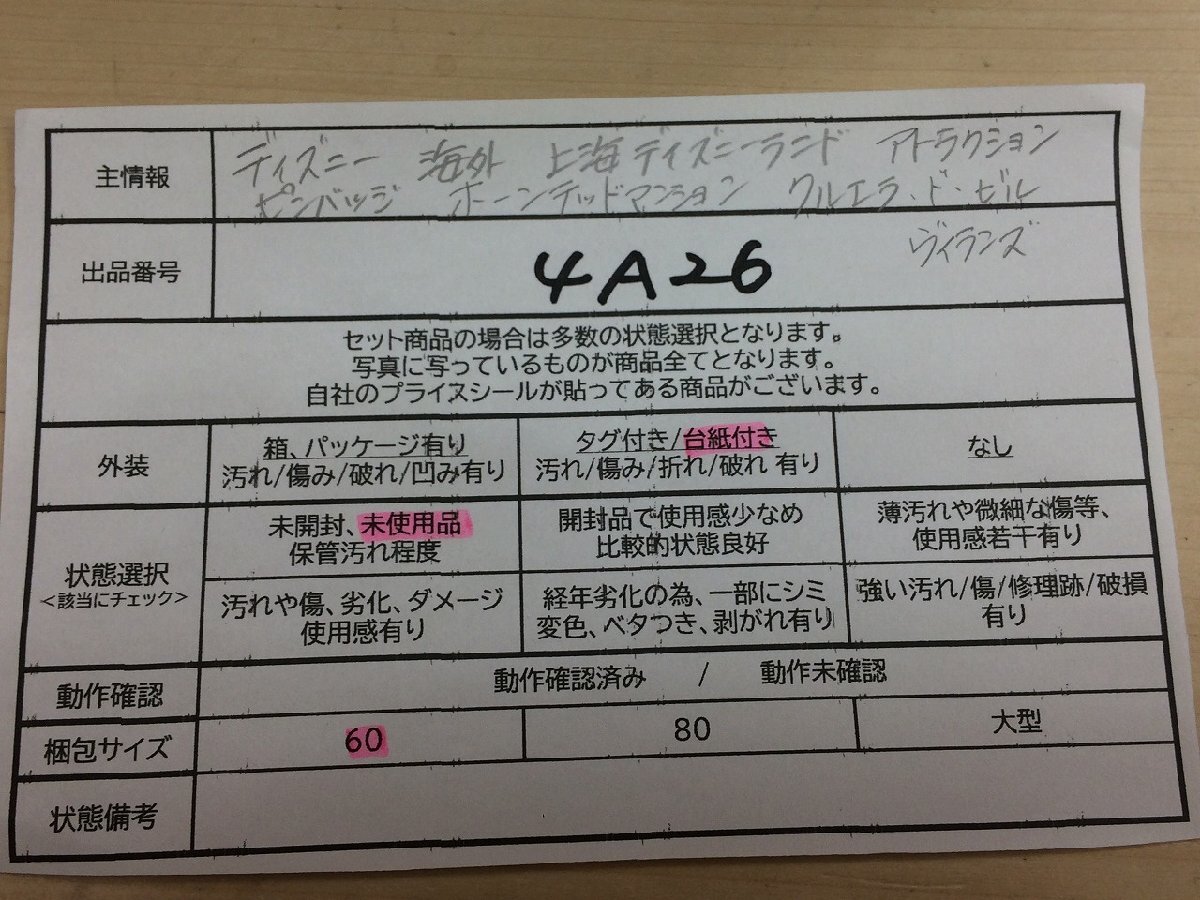 主情報
ディズニー 海外 上海ディズニーランド アトラクション
ピンバッジ ホーンテッドマンション クルエラ・ド・ビル
ヴィランズ
出品番号
4A26
セット商品の場合は多数の状態選択となります。
写真に写っているものが商品全てとなります。
自社のプライスシールが貼ってある商品がございます。
外装
箱、パッケージ有り
汚れ/傷み/破れ/凹み有り
タグ付き/台紙付き
汚れ/傷み/折れ/破れ 有り
なし
状態選択
<該当にチェック>
未開封、未使用品
保管汚れ程度
開封品で使用感少なめ
比較的状態良好
薄汚れや微細な傷等、
使用感若干有り
汚れや傷、劣化、ダメージ
使用感有り
経年劣化の為、一部にシミ
変色、ベタつき、剥がれ有り
強い汚れ/傷/修理跡/破損
有り
動作確認
動作確認済み / 動作未確認
梱包サイズ
60
80
大型
状態備考